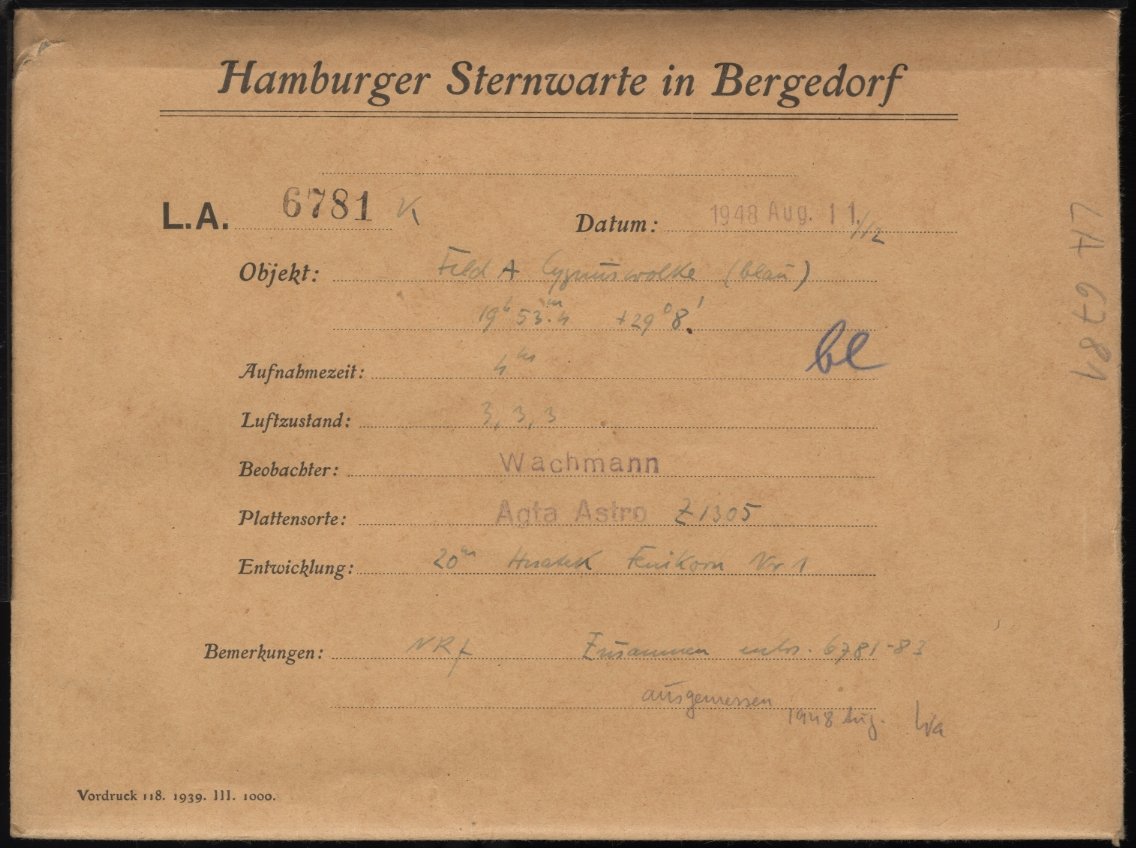 Hamburger Sternwarte in Bergedorf
L.A. 6781 K Datum: 1948 Aug. 11./12
Objekt: Feld A Cygnuswolke (blau)
19h 53m.4 +29° 8'.
bl
Aufnahmezeit: 4m
Luftzustand: 3, 3, 3
Beobachter: Wachmann
Plattensorte: Agfa Astro Z1305
Entwicklung: 20m Feinkorn Nr 1
Bemerkungen: Zusammen 6781-83
ausgemessen 1948 Aug. Wa
Vordruck 118. 1939. III. 1000.
LA 6781